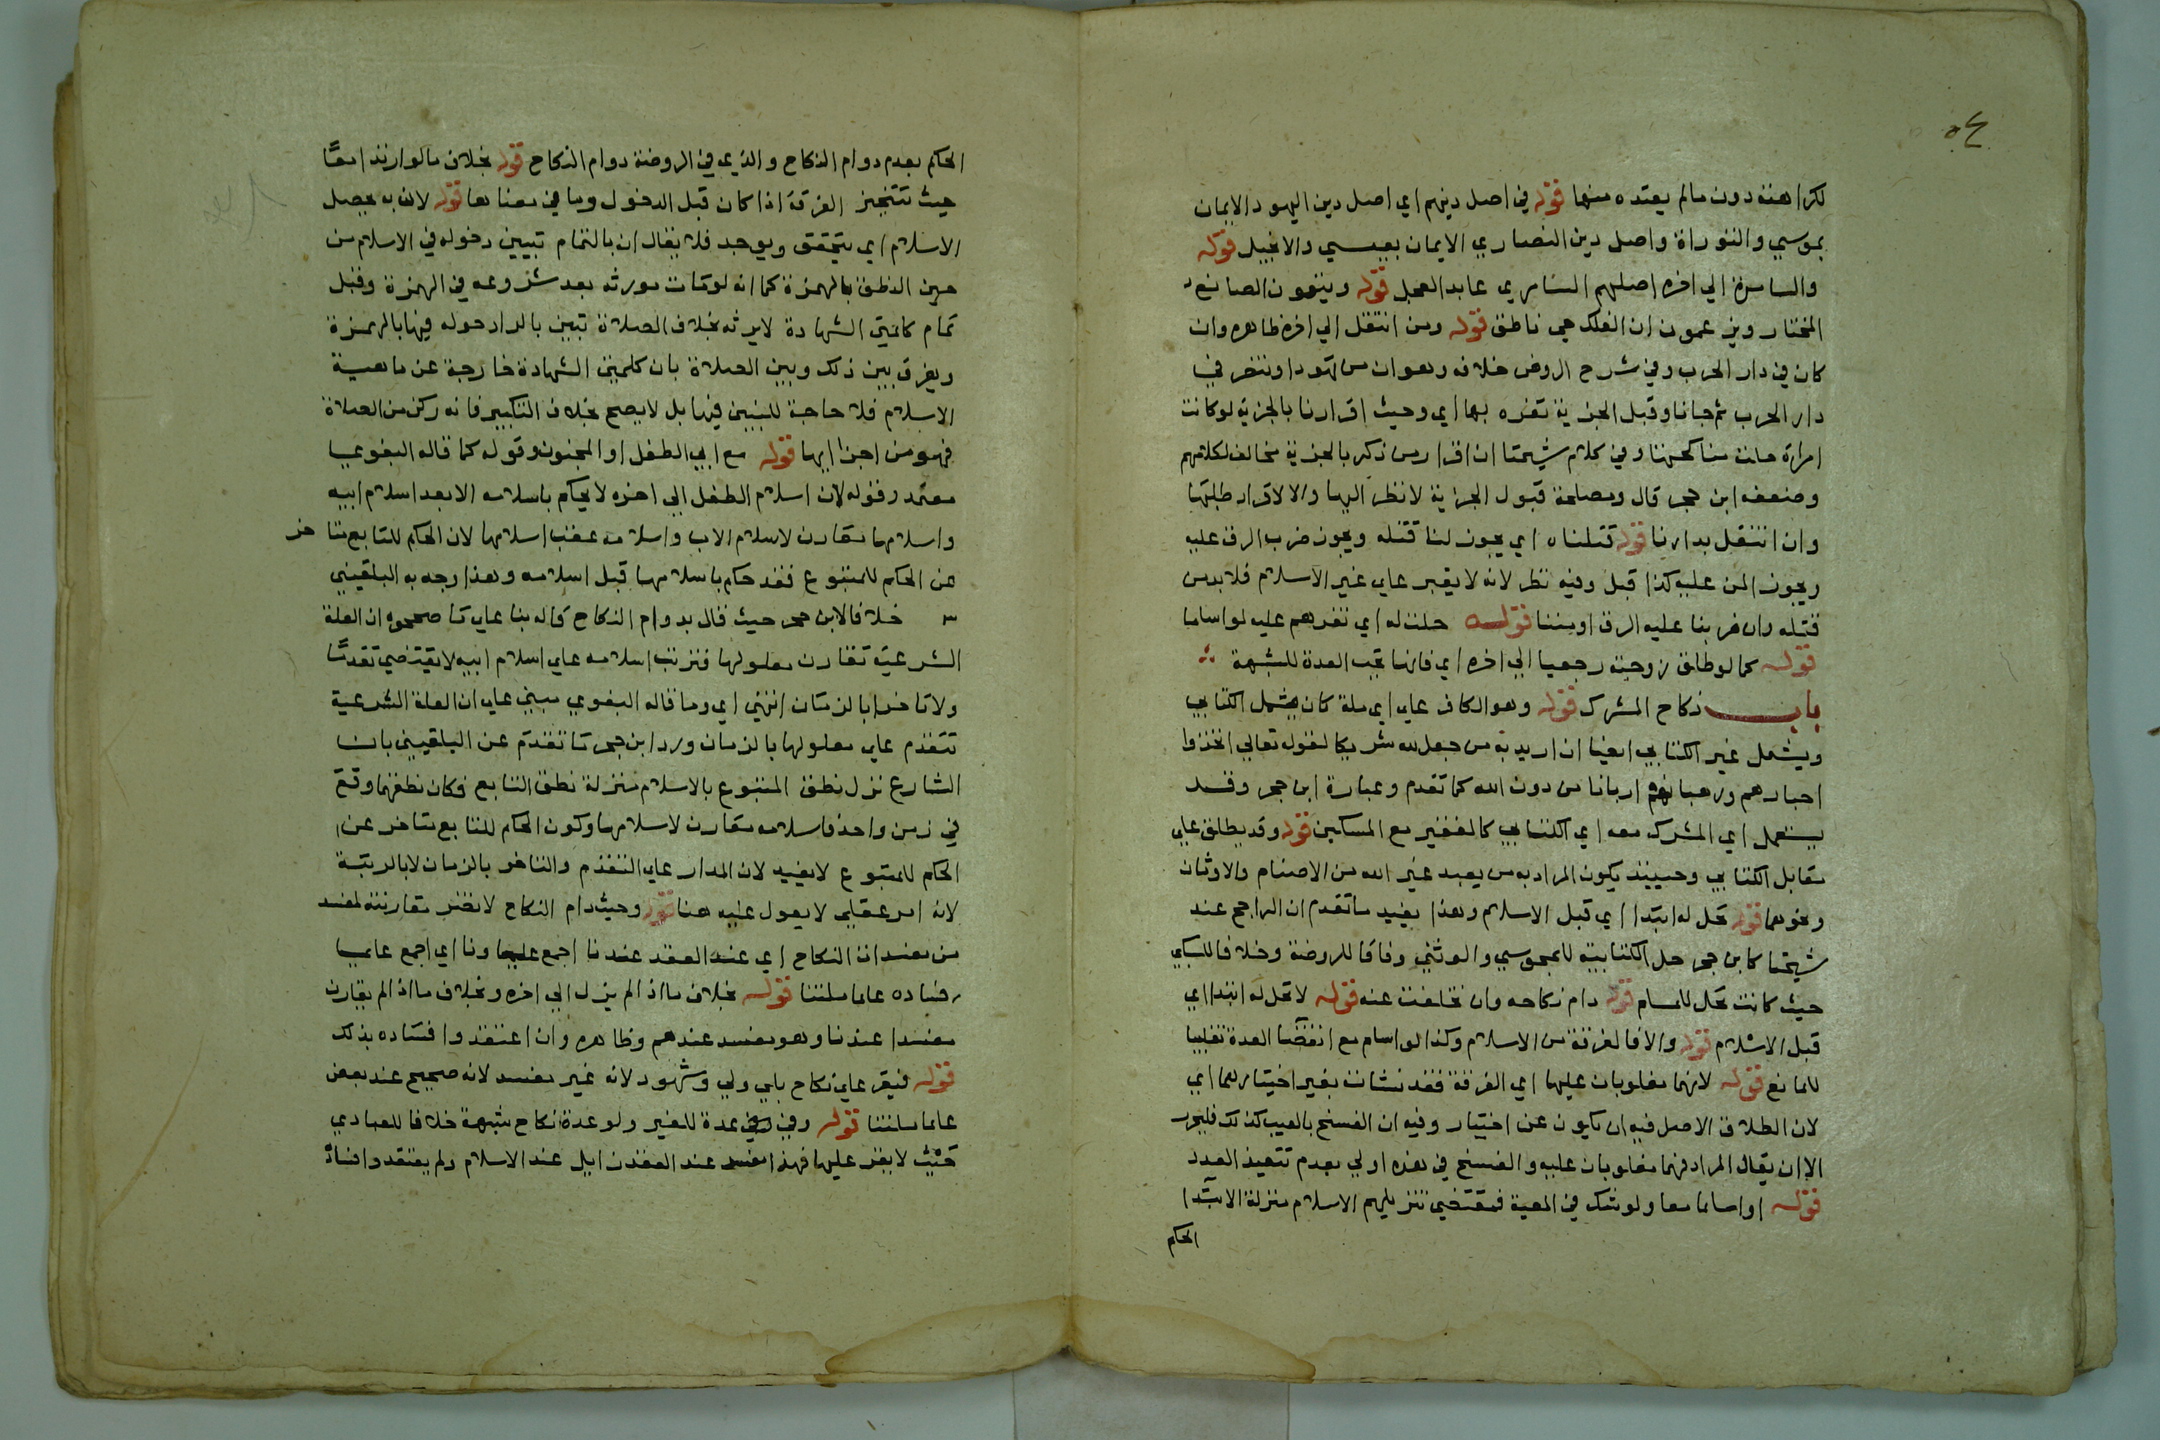 ٥٤
لكراهته دون مالم يعتده منها قوله في اصل دينهم اي اصل دين اليهود الايمان
بموسي والتوراة واصل دين النصاري الايمان بعيسي والانجيل قوله
والسامرة الي اخره اصلهم السامري عابد العجل قوله وينفون الصانع
المختار ويزعمون ان الفلك حي ناطق قوله ومن انتقل الي اخره ظاهره وان
كان في دار الحرب وفي شرح الروض خلافه وهو ان من تهود او تنصر في
دار الحرب ثم جانا وقبل الجزية نقره بها اي وحيث اقرارنا بالجزية لو كانت
امراة حلت مناكحتها وفي كلام شيخنا ان اقرار من ذكر بالجزية مخالف لكلامهم
وضعفه ابن حجر قال ومصلحة قبول الجزية لا نظر اليها والا لاقرار طلبتها
وان انتقل بدارنا قوله قتلناه اي يجوز لنا قتله ويجوز ضرب الرق عليه
ويجوز المن عليه كذا قيل وفيه نظر لانه لا يقر علي غير الاسلام فلا بد من
قتله وان ضربنا عليه الرق او مننا قوله حلت له اي نقرهم عليه لو اسلما
قوله كما لو طلق زوجته رجعيا الي اخره اي فانها تجب العدة للشبهة
باب نكاح المشرك قوله وهو الكافر علي اي ملة كان يشمل الكتابي
ويشمل غير الكتابي ايضا ان اريد به من جعل لله شريكا لقوله تعالي اتخذوا
احبارهم ورهبانهم اربابا من دون الله كما تقدم وعبارة ابن حجر وقد
يستعمل اي المشرك معه اي الكتابي كالفقير مع المسكين قوله وقد يطلق علي
مقابل الكتابي وحينيذ يكون المراد به من يعبد غير الله من الاصنام والاوثان
ونحوهما قوله تحل له ابتدا اي قبل الاسلام وهذا يفيد ما تقدم ان الراجح عند
شيخنا كابن حجر حل الكتابية للمجوسي والوثني وفاقا للروضة وخلافا للسبكي
حيث كانت تحل للمسلم قوله دام نكاحه وان تخلفت عنه قوله لا تحل له ابتدا اي
قبل الاسلام قوله والا فالفرقة من الاسلام وكذا لو اسلم مع انقضا العدة تغليبا
للمانع قوله لانهما مغلوبان عليها اي الفرقة فقد نشات بغير اختيارهما اي
لان الطلاق الاصل فيه ان يكون عن اختيار وفيه ان الفسخ بالعيب كذلك فليحرر
الا ان يقال المراد فهما مغلوبان عليه والفسخ في هذه اولي بعدم تنقيص العدد
قوله او اسلما معا ولو شك في المعية فمقتضي تنزيلهم الاسلام منزلة الابتدا
الحكم
الحكم بعدم دوام النكاح والذي في الروضة دوام النكاح قوله بخلاف ما لو ارتدا معا
حيث تتنجز الفرقة اذا كان قبل الدخول وما في معناها قوله لان به يحصل
الاسلام اي يتحقق ويوجد فلا يقال ان بالتمام تبيين دخوله في الاسلام من
حين النطق بالهمزة كما انه لو مات مورثه بعد شروعه في الهمزة وقبل
تمام كلمتي الشهادة لا يرثه بخلاف الصلاة تبين بالرا دخوله فيها بالهمزة
ويفرق بين ذلك وبين الصلاة بان كلمتي الشهادة خارجة عن ماهية
الاسلام فلا حاجة للتبين فيها بل لا يصح بخلاف التكبير فانه ركن من الصلاة
فهو من اجزايها قوله مع ابي الطفل او المجنون وقوله كما قاله البغوي
معتمد وقوله لان اسلام الطفل الي اخره لا يحكم باسلامه الا بعد اسلام ابيه
واسلامها مقارن لاسلام الاب واسلامه عقب اسلامها لان الحكم للتابع متاخر
عن الحكم للمتبوع فقد حكم باسلامها قبل اسلامه وهذا وجه به البلقيني
خلافا لابن حجر حيث قال بدوام النكاح قال بنا علي ما صححوه ان العلة
الشرعية تقارن معلولها فترتب اسلامه علي اسلام ابيه لا يقتضي تقدما
ولا تاخرا بالزمان انتهي اي وما قاله البغوي مبني علي ان العلة الشرعية
تتقدم علي معلولها بالزمان ورد ابن حجر ما تقدم عن البلقيني بان
الشارع نزل نطق المتبوع بالاسلام منزلة نطق التابع فكان نطقهما وقع
في زمن واحد فاسلامه مقارن لاسلامها وكون الحكم للتابع متاخر عن
الحكم للمتبوع لا يفيد لان المدار علي التقدم والتاخر بالزمان لا بالرتبة
لانه امر عقلي لا يعول عليه هنا قوله وحيث دام النكاح لا تضر مقارنته لمفسد
من مفسدات النكاح اي عند العقد عندنا اجمع علماونا اي اجمع علي
فساده علما ملتنا قوله بخلاف ما اذا لم يزل الي اخره وبخلاف ما اذا لم يقارن
مفسدا عندنا وهو مفسد عندهم وظاهره وان اعتقدوا فساده بذلك
قوله فيقر علي نكاح بلي ولي وشهود لانه غير مفسد لانه صحيح عند بعض
علما ملتنا قوله وفي عدة للغير ولو عدة نكاح شبهة خلافا للعبادي
حيث لا يقر عليها فهذا مفسد عند العقد زايل عند الاسلام ولم يعتقدوا فساده